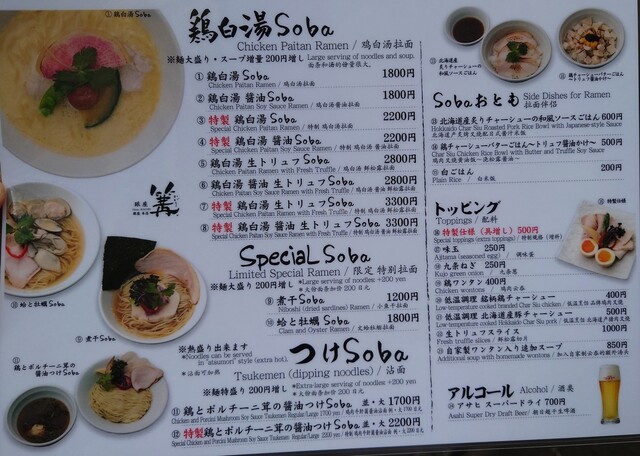 ① 鶏白湯Soba
鶏白湯Soba
Chicken Paitan Ramen / 鸡白汤拉面
※麺大盛り・スープ増量 200円増し
Large serving of noodles and soup.
① 鶏白湯Soba 1800円
Chicken Paitan Ramen / 鸡白汤拉面
② 鶏白湯 醤油Soba 1800円
Chicken Paitan Soy Sauce Ramen
③ 特製 鶏白湯Soba 2200円
Special Chicken Paitan Ramen / 特制 鸡白汤拉面
④ 特製 鶏白湯 醤油Soba 2200円
Special Chicken Paitan Soy Sauce Ramen
⑤ 鶏白湯 生トリュフSoba 2800円
Chicken Paitan Ramen with Fresh Truffle
⑥ 鶏白湯 醤油 生トリュフSoba 2800円
Chicken Paitan Soy Sauce Ramen with Fresh Truffle
⑦ 特製 鶏白湯 生トリュフSoba 3300円
Special Chicken Paitan Ramen with Fresh Truffle
⑧ 特製 鶏白湯 醤油 生トリュフSoba 3300円
Special Chicken Paitan Soy Sauce Ramen with Fresh Truffle
銀座
篝
⑩ 蛤と牡蠣Soba
⑨ 煮干Soba
Special Soba
Limited Special Ramen / 限定 特别拉面
※麺大盛り 200円増し
*Large serving of noodles: +200 yen
⑨ 煮干Soba 1200円
Niboshi (dried sardines) Ramen / 小鱼干拉面
⑩ 蛤と牡蠣Soba 1800円
Clam and Oyster Ramen
※熱盛り出来ます
*Noodles can be served in "atsumori" style (extra hot).
つけSoba
Tsukemen (dipping noodles) / 沾面
※麺特盛り 200円増し
*Extra-large serving of noodles: +200 yen
⑪ 鶏とポルチーニ茸の醤油つけSoba 並・大 1700円
Chicken and Porcini Mushroom Soy Sauce Tsukemen Regular/Large 1700 yen
⑫ 特製 鶏とポルチーニ茸の醤油つけSoba 並・大 2200円
Special Chicken and Porcini Mushroom Soy Sauce Tsukemen Regular/Large 2200 yen
⑪
鶏とポルチーニ茸の
醤油つけSoba
⑬ 北海道産
炙りチャーシューの
和風ソースごはん
⑭ 鶏チャーシューバターごはん
Sobaおとも
Side Dishes for Ramen
拉面伴侣
⑬ 北海道産炙りチャーシューの和風ソースごはん 600円
Hokkaido Char Siu Roasted Pork Rice Bowl with Japanese-style Sauce
⑭ 鶏チャーシューバターごはん〜トリュフ醤油かけ〜 500円
Char Siu Chicken Rice Bowl with Butter and Truffle Soy Sauce
⑮ 白ごはん 200円
Plain Rice / 白米饭
トッピング
Toppings / 配料
⑯ 特製仕様(具増し) 500円
Special toppings (extra toppings)
⑰ 味玉 250円
Ajitama (seasoned egg)
⑱ 九条ねぎ 250円
Kujo green onion / 九条葱
⑲ 鶏ワンタン 400円
Chicken wontons / 鸡肉云吞
⑳ 低温調理 銘柄鶏チャーシュー 400円
Low-temperature cooked branded Char Siu chicken
㉑ 低温調理 北海道産豚チャーシュー 500円
Low-temperature cooked Hokkaido Char Siu pork
㉒ 生トリュフスライス 1000円
Fresh truffle slices / 鲜松露切片
㉓ 自家製ワンタン入り追加スープ 850円
Additional soup with homemade wontons
⑯ 特製仕様
アルコール Alcohol / 酒类
㉔ アサヒ スーパードライ 700円
Asahi Super Dry Draft Beer